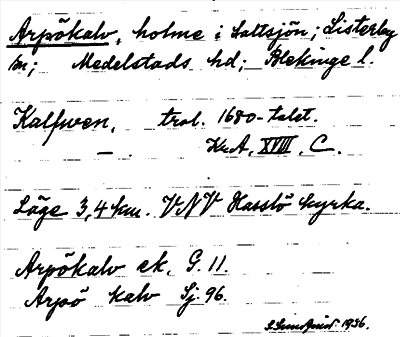 Arpökalv, holme i Saltsjön; Listerby
sn; Medelstads hd; Blekinge l.
Kalfwen, trol. 1680-talet.
— . KrA, XVIII, C.
Läge 3,4 km. VNV Hasslö kyrka.
Arpökalv ek. G. 11.
Arpö kalv Sj. 96.
1936.